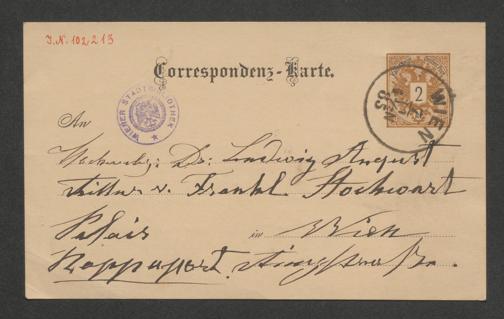 I.N. 102.213
Correspondenz-Karte.
WIENER STADTBIBLIOTHEK
2
WIEN
An
Dr. Ludwig August
Ritter v. Frankl-Hochwart
Palais in Wien
Rappaport